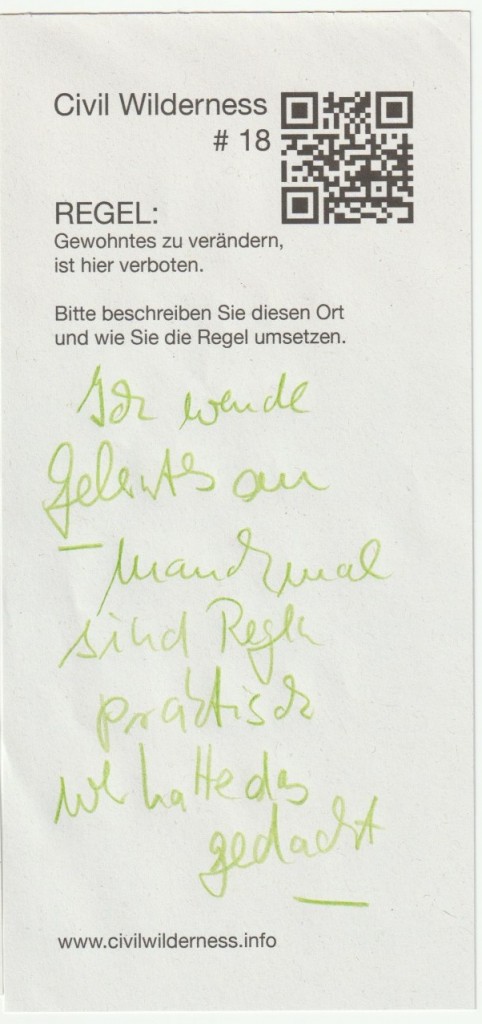 Civil Wilderness
# 18
REGEL:
Gewohntes zu verändern,
ist hier verboten.
Bitte beschreiben Sie diesen Ort
und wie Sie die Regel umsetzen.
Ich wende
Gelerntes an
– Manchmal
sind Regeln
praktisch
wer hatte das
gedacht –
www.civilwilderness.info